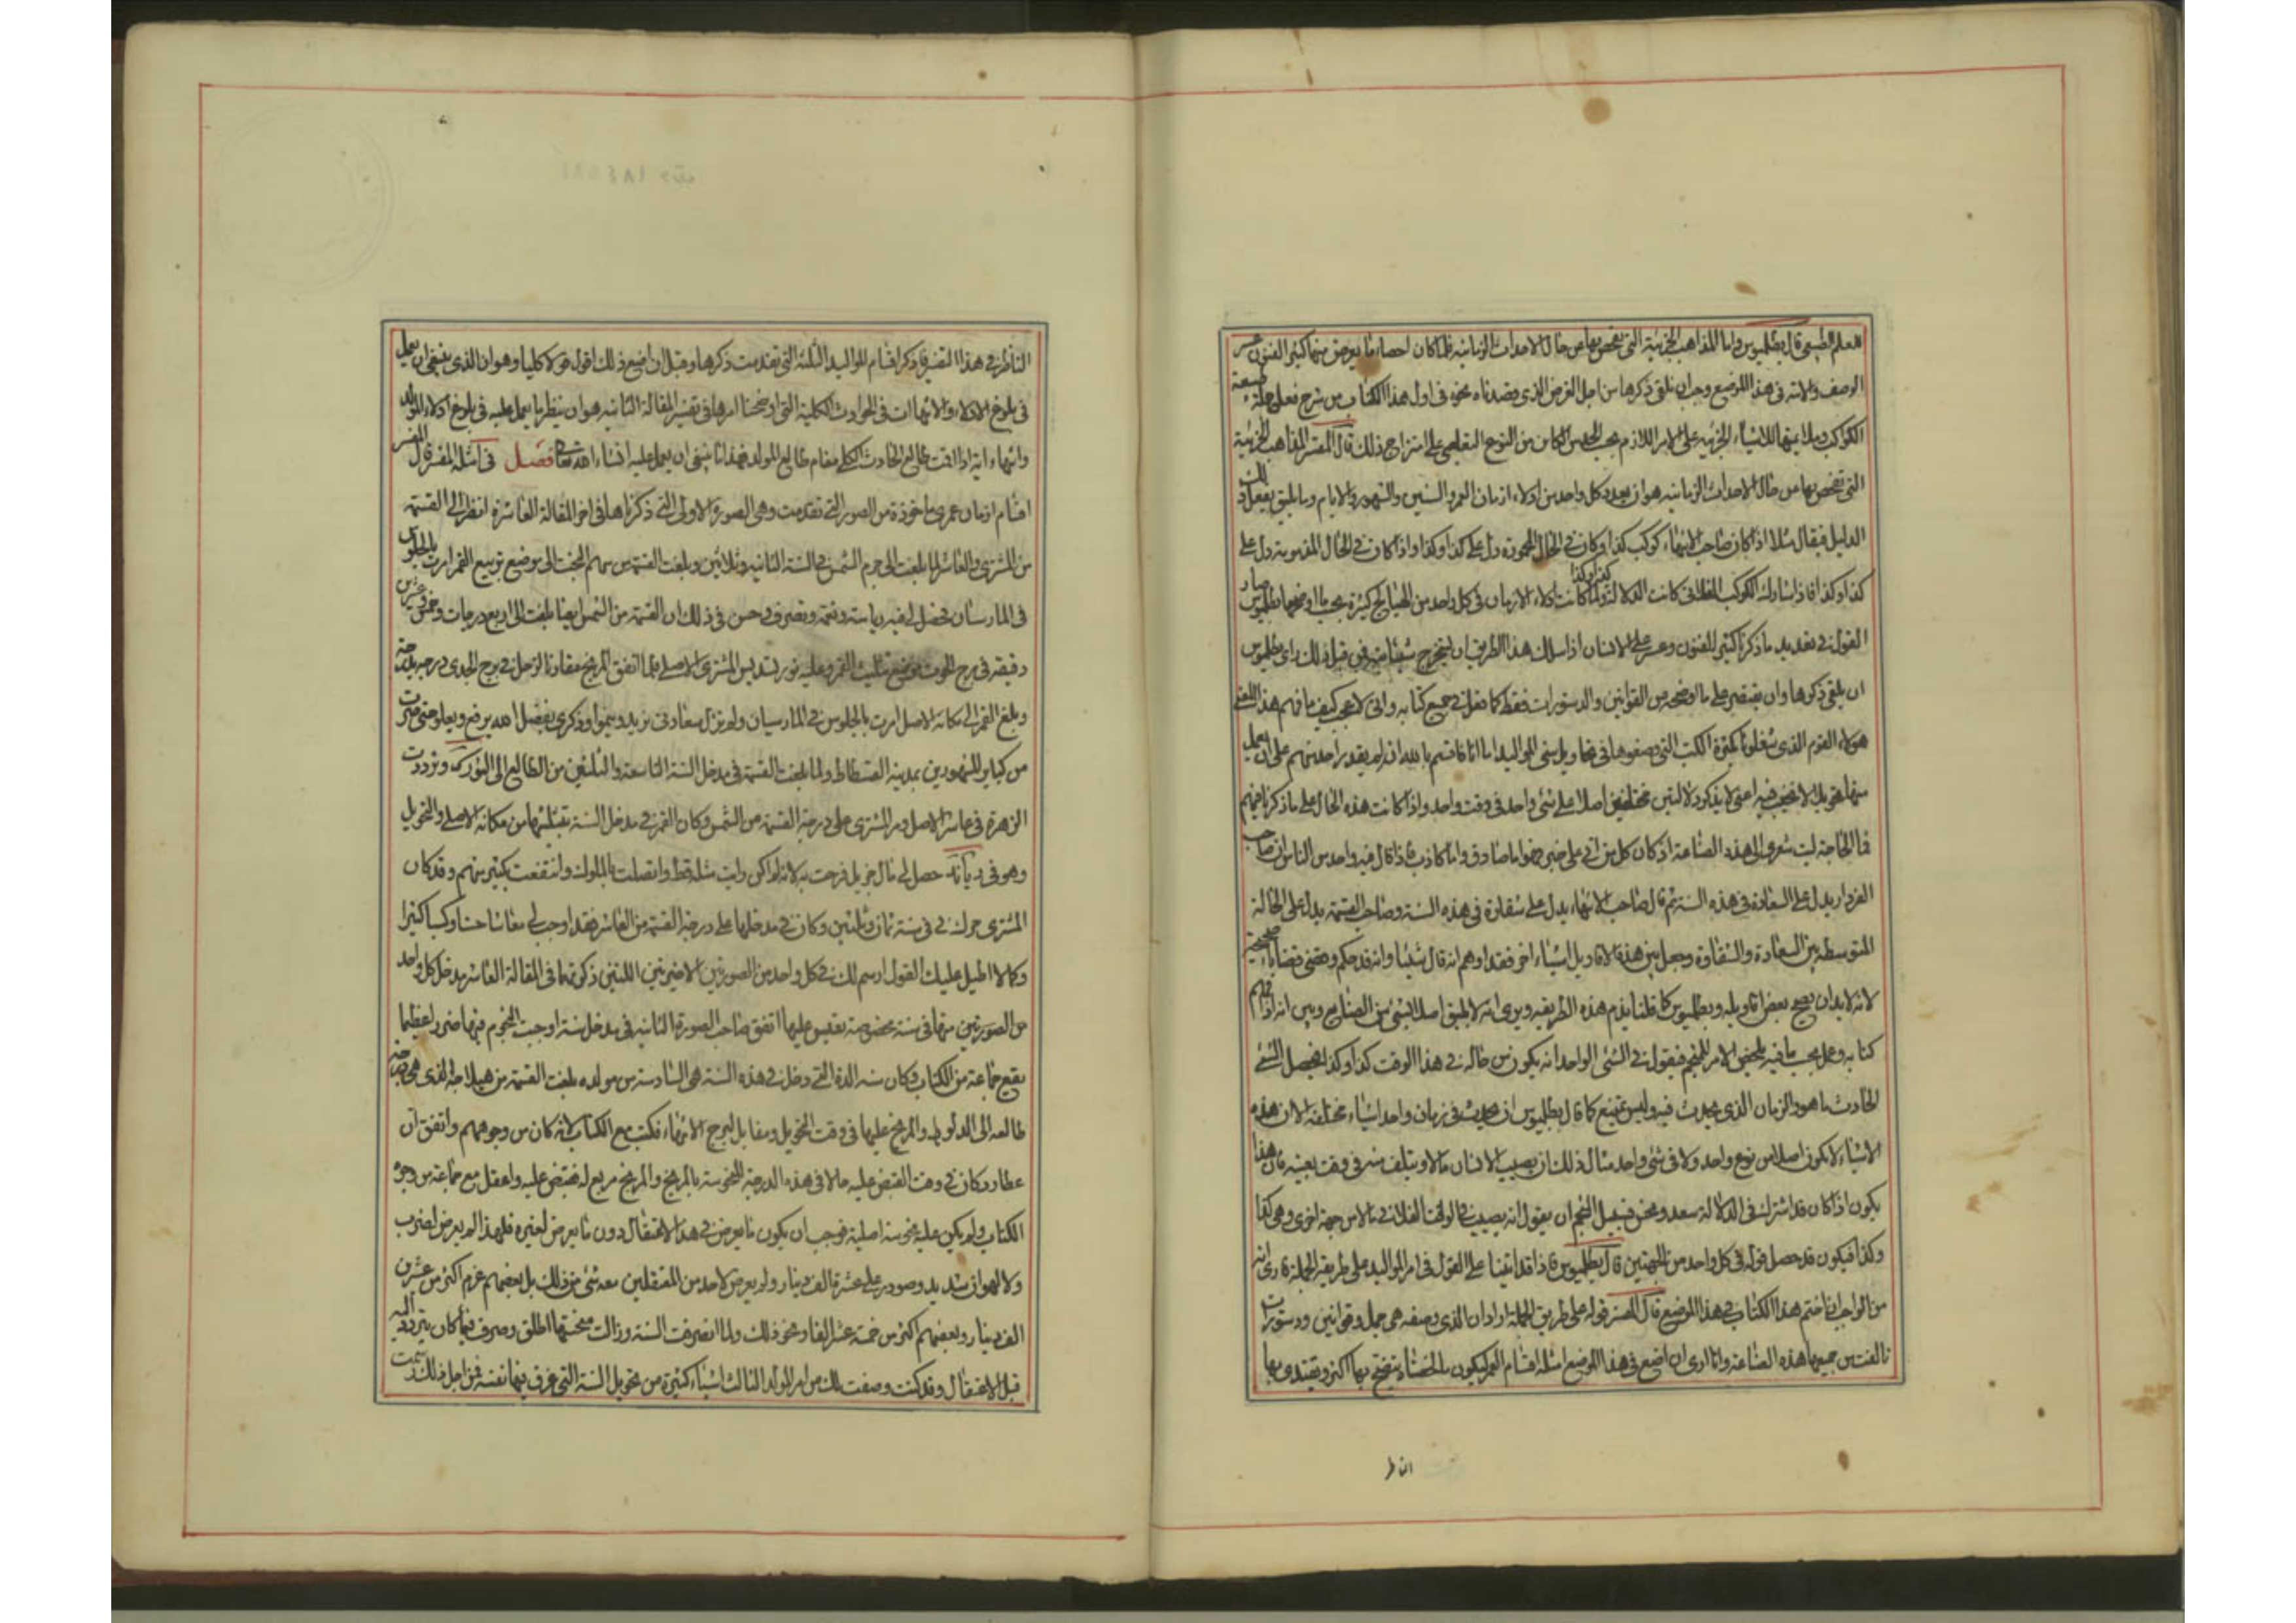 للعلم الطبيعي قال بطلميوس واما المذاهب الجزئية التي تفحص بها عن حال الاحداث الزمانية فلما كان احصاء ما يعرض منها كثير الفنون عسر
الوصف والاته في هذا الموضع وجب ان نلقي ذكرها من اجل الغرض الذي قصدناه نحوه في اول هذا الكتاب من شرح فعل جملة طبيعة
الكواكب وملايمتها للاشياء الجزئية على الامر اللازم بحسب الحدس الكائن من النوع التعليمي على امتزاج ذلك قال المفسر المذاهب الجزئية
التي تفحص بها من حال الاحداث الزمانية هو ان يعدد كل واحد من ادلاء ازمان العمر والسنين والشهور والايام وما يليق بفعل ذلك
الدليل فيقال مثلا اذا كان صاحب الانتهاء كوكب كذا وكان في الحال المحمودة دل على كذا وكذا واذا كان في الحال المذمومة دل على
كذا وكذا فاذا شاركه الكوكب الفلاني كانت الدلالة كذا وكذا ولما كانت ادلاء الازمان في كل واحد من الهياليج كثيرة بحسب ما اوضحها بطلميوس صار
القول في تعديد ما ذكرنا كثير الفنون وعسر على الانسان اذا سلك هذا الطريق ان يستخرج شيئا منه فمن قبل ذلك راى بطلميوس
ان يلقي ذكرها وان يقتصر على ما اوضحه من القوانين والدستورات فقط كما فعل في جميع كتابه واني لاعجب كيف ما فهم هذا المعنى
هولاء القوم الذي شغلونا بكثرة الكتب التي وصفوها في تحاويل سني المواليد اما انا فاقسم بالله انه لم يقدر احد منهم على ان يعمل
منها تحويلا لا تخبط فيه اعني لا يذكر دلالتين مختلفتين اصلا على شيء واحد في وقت واحد واذا كانت هذه الحال على ما ذكرنا عنهم
فما الحاجة ليت شعري الى هذه الصناعة اذ كان كل من اتى على خبر فهو اما صادق واما كاذب فاذا قال فيه واحد من الناس ان صاحب
الفردار يدل على السعادة في هذه السنة ثم قال صاحب الانتهاء يدل على شقاوة في هذه السنة وصاحب القسمة يدل على الحالة
المتوسطة بين السعادة والشقاوة وجعل بين هذه الاقاويل اشياء اخر فقد اوهم انه قال شيئا وانه قد حكم وقضى قضايا صحيحة
لانه لابد ان يصح بعض اقاويله وبطلميوس كما قلنا يذم هذه الطريقة ويرى انه لا يليق اصلا بشيء من الصنايع وبين انه اذا فهم
كتابه وعمل بحسب ما فيه تلخص الامر للمنجم فيقول في الشيء الواحد انه يكون من حاله في هذا الوقت كذا وكذا فيحصل الشيء
الحادث ما هو والزمان الذي يحدث فيه وليس يمتنع كما قال بطلميوس ان يحدث في زمان واحد اشياء مختلفة الا ان هذه
الاشياء لا تكون اصلا من نوع واحد ولا في شيء واحد مثال ذلك ان يصيب الانسان مالا ويتلف منه في وقت بعينه فان هذا
يكون اذا كان قد اشترك في الدلالة سعد ونحس فسبيل المنجم ان يقول انه يصيب في الوقت الفلاني مالا من جهة اخرى وهو كذا
وكذا فيكون قد حصل قوله في كل واحد من الجهتين قال بطلميوس فاذا قد اتينا على القول في امر المواليد على طريق الجملة فارى انه
من الواجب ان اختم هذا الكتاب في هذا الموضع قال المفسر قوله على طريق الجملة اراد ان الذي وصفه هي جمل وقوانين ودستورات
تالفت من جميعها هذه الصناعة وانا ارى ان اضع في هذا الموضع امثلة اقسام العمر ليكون الحساب يتضح بها اكثر ويقتدي بها
الناظر
الناظر في هذا التفسير فاذكر اقسام المواليد الثلثة التي تقدمت ذكرها وقبل ان اضع ذلك اقول قولا كليا وهو ان الذي ينبغي ان يعمل
في بلوغ الادلاء والانتهاات في الحوادث الكلية التي اوضحنا امرها في تفسير المقالة الثانية هو ان ينظر ما يعمل عليه في بلوغ ادلاء المولد
وانتهاء اته اذا اقمت طالع الحادث الكلي مقام طالع المولد فهذا ما ينبغي ان يعمل عليه انشاء الله تعالى فصل في امثلة المفسر قال المفسر
اقسام ازمان عمري ماخوذة من الصور التي تقدمت وهي الصورة الاولى التي ذكرناها في اخر المقالة العاشرة انظر الى القسمة
من المشتري والعاشر لما بلغت الى جرم الشمس في السنة الثانية وثلاثين وبلغت القسمة من سهم البخت الى موضع تربيع القمر امرت بالجلوس
في المارستان فحصل لي فيه رياسة ونعمة وتصرف حسن في ذلك ان القسمة من الشمس ايضا بلغت الى اربع درجات وخمس وعشرين
دقيقة في برج الحوت موضع تثليث القمر وعليه نور تسديس المشتري الاصلي فلما اتفق المريخ مقارنا لزحل في برج الجدي درجة بدرجة
وبلغ القمر الى مكانه الاصل امرت بالجلوس في المارستان ولم تزل سعادتي تزيد وينمو ذكري بفضل الله يرفع ويعلو حتى صرت
من كبار المشهورين بمدينة الفسطاط ولما بلغت القسمة في مدخل السنة التاسعة والثلثين من الطالع الى النورك وتزودت
الزهرة في عاشر الاصل ومر المشتري على درجة القسمة من الشمس وكان القمر في مدخل السنة تقبلها من مكانه الاصلي والتحويل
وهو في حصل لي مال جزيل فرحت به لانه لم اكن رايت مثله قط واتصلت بالملوك وانتفعت بكثير منهم وقد كان
المشتري حرك لي في سنة ثمان وثلثين وكان في مدخلها على درجة القسمة من العاشر فقد اوجب لي معاشا حسنا وكسبا كثيرا
وكما لا اطيل عليك القول ارسم لك في كل واحد من الصورتين الاخيرتين اللتين ذكرتهما في المقالة العاشرة مدخل كل واحد
من الصورتين منها في سنة مخصوصة تقيس عليها اتفق صاحب الصورة الثانية في مدخل سنة اوجبت النجوم فيها ضررا عظيما
يقع جماعة من الكتاب وكان سنه الذي دخل في هذه السنة هي السادسة من مولده بلغت القسمة من هيلاجه الذي هي درجة
طالعه الى الدلو والمريخ عليها في وقت التحويل ومقابل لبرج الانتهاء فنكب مع الكتاب لانه كان من وجوههم واتفق ان
عطارد كان في وقت القبض عليه حالا في هذه الدرجة المنحوسة بالمريخ والمريخ مربع له فقبض عليه واعتقل مع جماعة من وجوه
الكتاب ولم يكن عليه نحوسة اصلية فوجب ان يكون ما يعرض في هذا الاعتقال دون ما يعرض لغيره فلهذا لم يعرض لضرب
ولا لهوان شديد وصودر على عشرة الف دينار ولم يعرض لاحد من المعتقلين معه شيء من ذلك بل بعضهم غرم اكثر من عشرين
الف دينار وبعضهم اكثر من خمسة عشر الفا ونحو ذلك ولما انصرفت السنة وزالت منحستها اطلق وصرف فيما كان يتردد اليه
قبل الاعتقال وقد كنت وصفت لك من امر المولد الثالث اشياء كثيرة من تحويل السنة التي غرق فيها نفسه فمن اجل ذلك رسمت